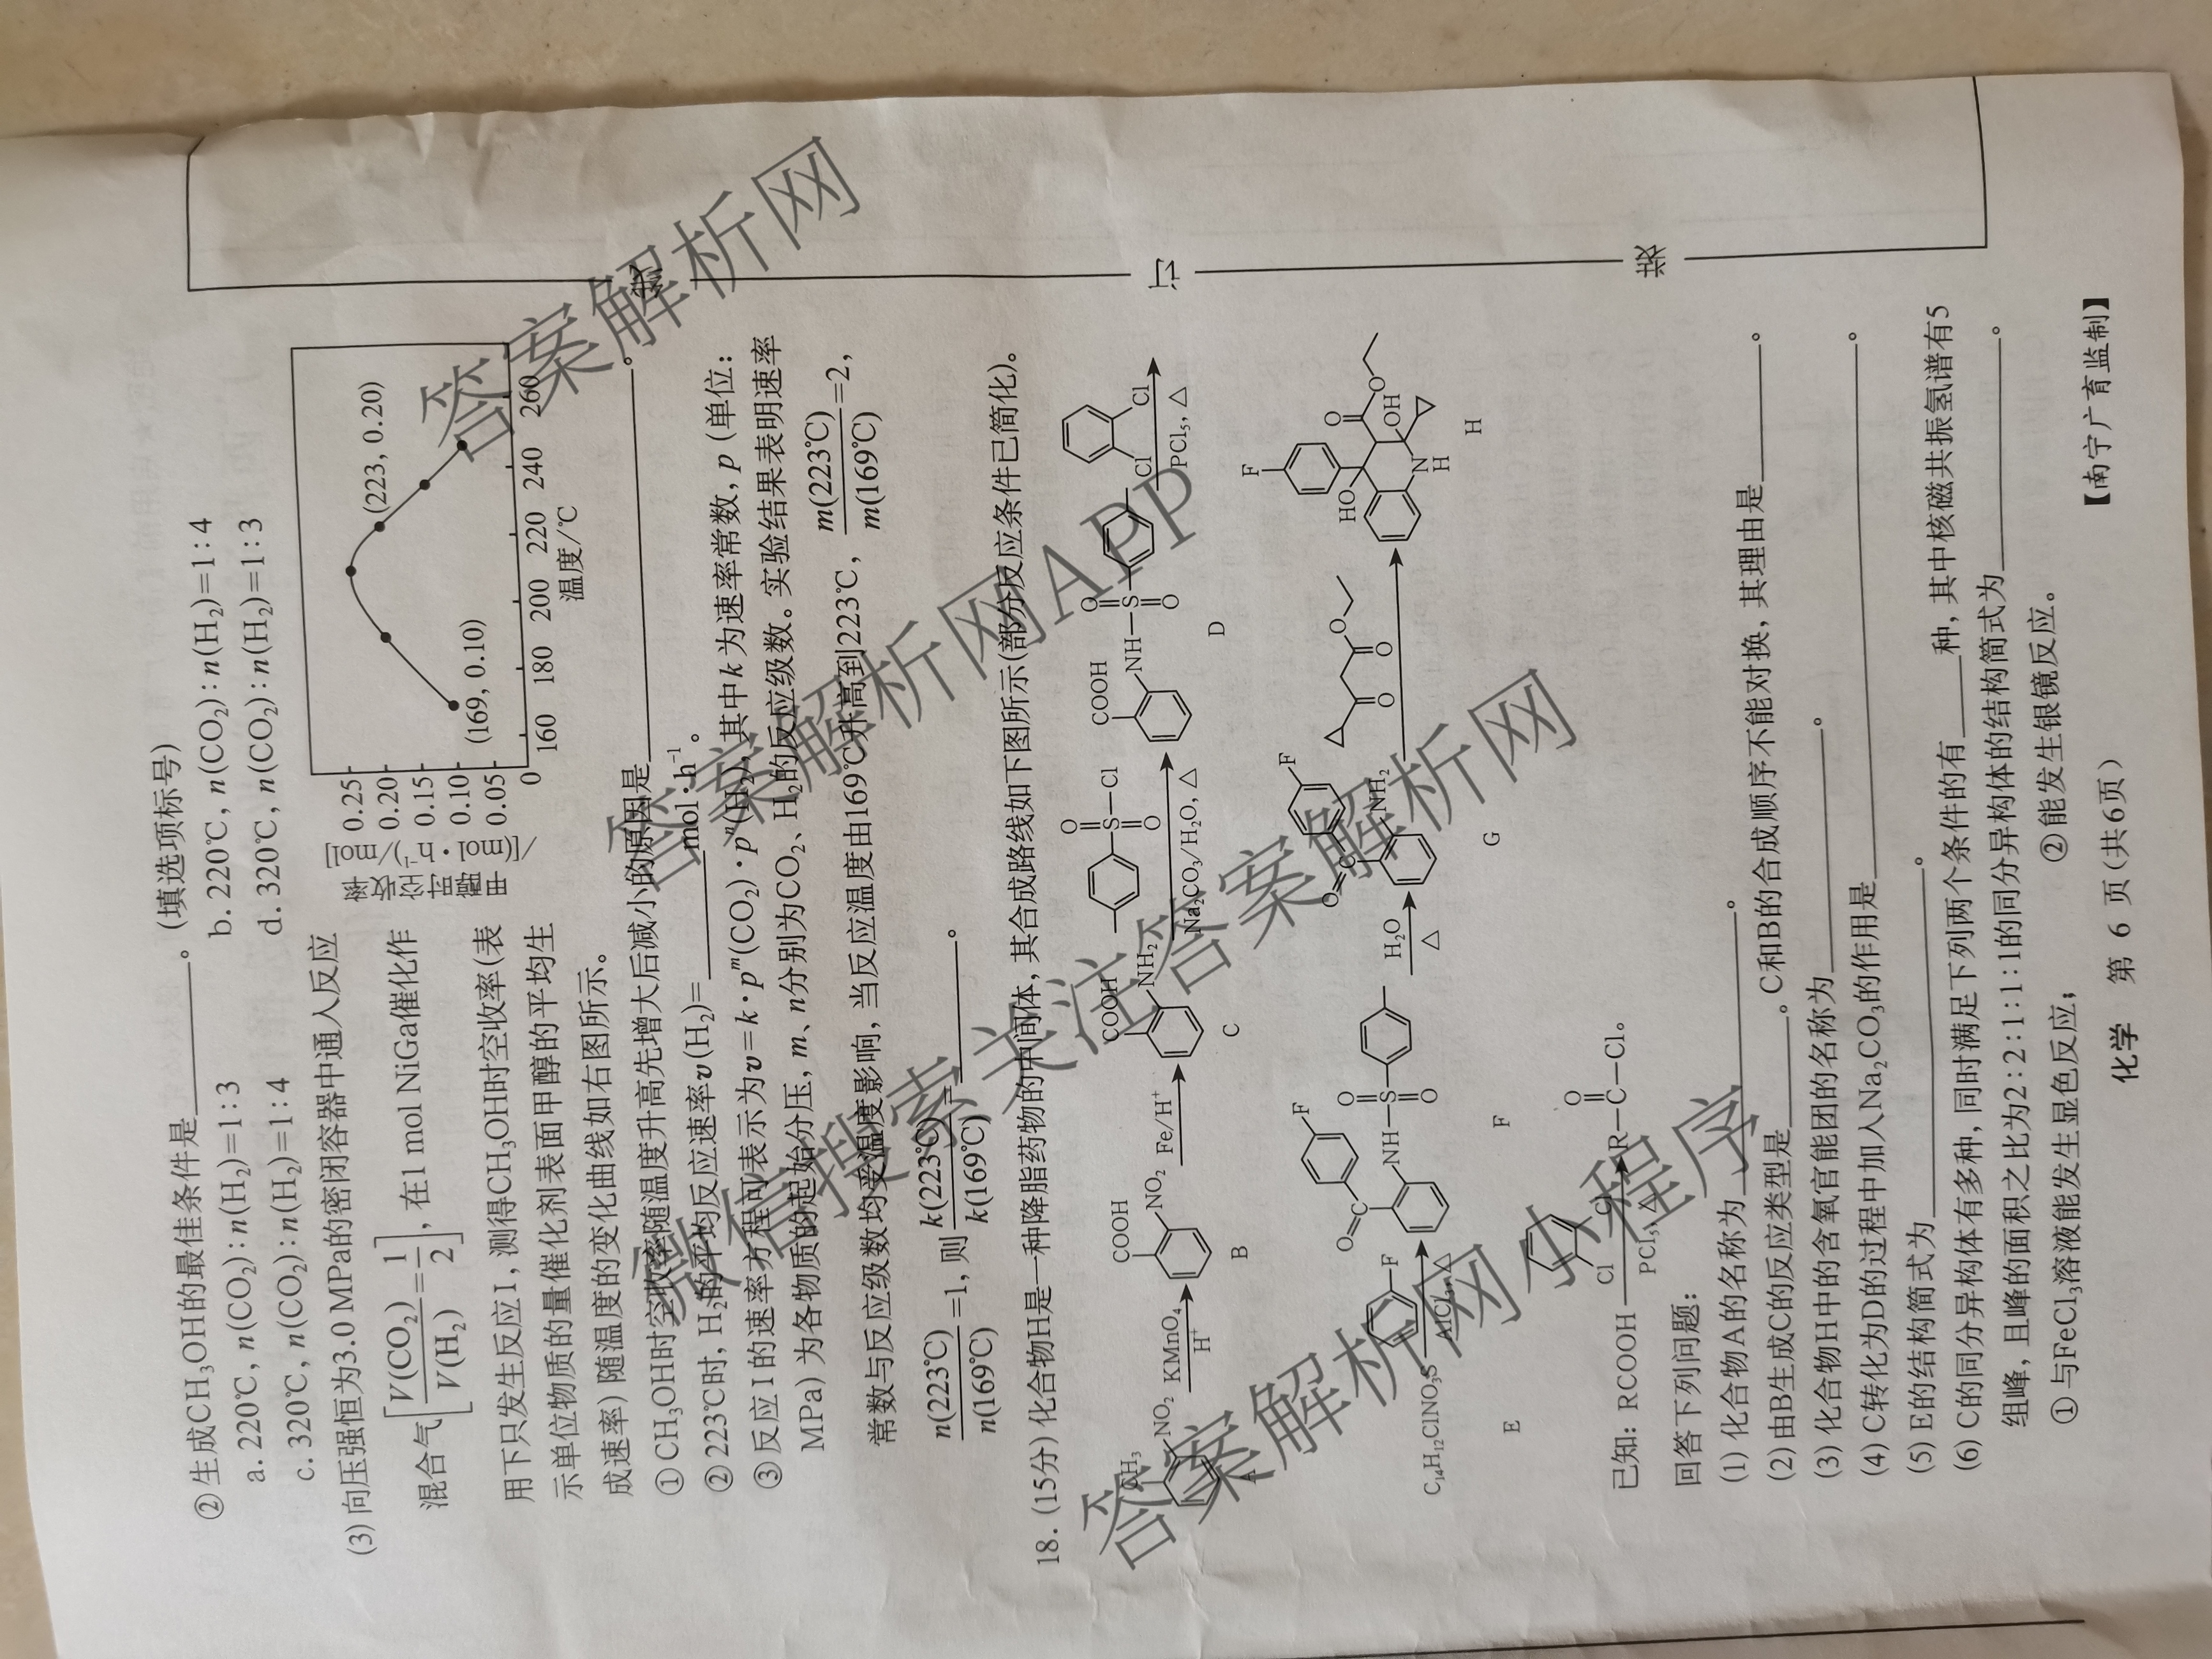 ②生成CH₃OH的最佳条件是______。(填选项标号)
a. 220℃, n(CO₂)∶n(H₂)=1∶3    b. 220℃, n(CO₂)∶n(H₂)=1∶4
c. 320℃, n(CO₂)∶n(H₂)=1∶4    d. 320℃, n(CO₂)∶n(H₂)=1∶3
(3) 向压强恒为3.0 MPa的密闭容器中通入反应
混合气[V(CO₂)/V(H₂)=1/2], 在1 mol NiGa催化作
用下只发生反应I, 测得CH₃OH时空收率(表
示单位物质的量催化剂表面甲醇的平均生
成速率) 随温度的变化曲线如右图所示。
甲醇时空收率/[(mol·h⁻¹)/mol]
0.25
0.20
0.15
0.10
0.05
0
(223, 0.20)
(169, 0.10)
160 180 200 220 240 260
温度/℃
①CH₃OH时空收率随温度升高先增大后减小的原因是______。
②223℃时, H₂的平均反应速率v(H₂)=______mol·h⁻¹。
③反应I的速率方程可表示为v=k·pᵐ(CO₂)·pⁿ(H₂), 其中k为速率常数, p (单位:
MPa) 为各物质的起始分压, m、n分别为CO₂、H₂的反应级数。实验结果表明速率
常数与反应级数均受温度影响, 当反应温度由169℃升高到223℃, m(223℃)/m(169℃)=2,
n(223℃)/n(169℃)=1, 则k(223℃)/k(169℃)=______。
18. (15分) 化合物H是一种降脂药物的中间体, 其合成路线如下图所示(部分反应条件已简化)。
CH₃ NO₂ A KMnO₄ H⁺ COOH NO₂ B Fe/H⁺ COOH NH₂ C O S Cl O Na₂CO₃/H₂O, △ COOH NH O S O D Cl Cl PCl₅, △
C₁₄H₁₂ClNO₃S E F AlCl₃, △ O C F NH O S O F H₂O △ O C F NH₂ G O O O HO F O O OH N H H
已知: RCOOH Cl Cl PCl₅, △ R—C—Cl。 O
回答下列问题:
(1) 化合物A的名称为______。
(2) 由B生成C的反应类型是______。C和B的合成顺序不能对换, 其理由是______。
(3) 化合物H中的含氧官能团的名称为______。
(4) C转化为D的过程中加入Na₂CO₃的作用是______。
(5) E的结构简式为______。
(6) C的同分异构体有多种, 同时满足下列两个条件的有______种, 其中核磁共振氢谱有5
组峰, 且峰的面积之比为2∶2∶1∶1∶1的同分异构体的结构简式为______。
①与FeCl₃溶液能发生显色反应;    ②能发生银镜反应。
化学 第 6 页(共6页) 【南宁广育监制】
订
线
答案解析网
微信搜索 关注答案解析网
答案解析网APP
答案解析网小程序
答案解析网